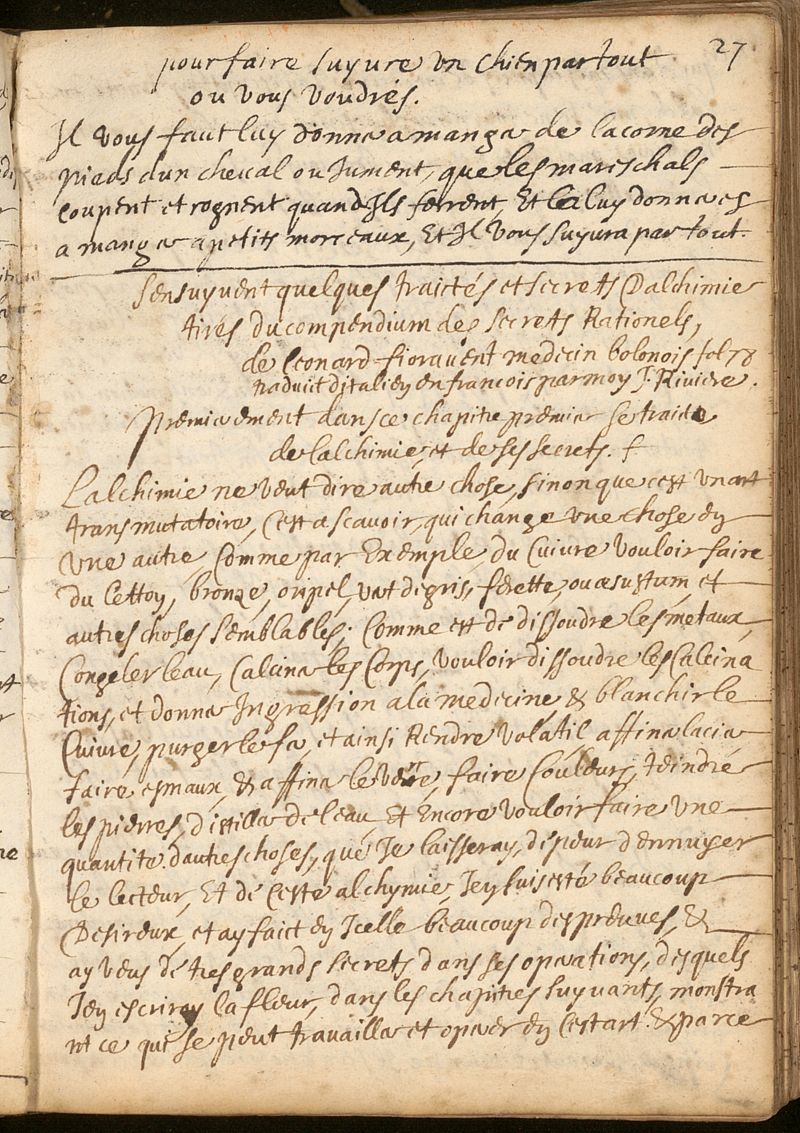 27
pour faire suyure un chien partout
ou vous voudrés.
Il vous faut luy donner a manger de la corne des
pieds dun cheval ou Jument, que les mareschals
coupent et rognent quand Ils ferrent, Et la luy donneres
a manger a petits morceaux, Et Il vous suyura par tout.
Sensuyuent quelques traictés et secrets Dalchimie
tirés du compendium des secrets Rationels,
de Leonard fiorauent medecin bolonois fol 78
traduict ditalien en francois par moy J. Riviere.
Premierement dans ce chapitre premier se traite
de Lalchimie et de ses secrets. f
Lalchimie ne veut dire autre chose, sinon que cest un art
transmutatoire, Cest a scauoir, qui change une chose en
une autre, Comme par Exemple du Cuivre vouloir faire
du Letton, bronze, oripel, vert degris, ferette, ou æsustum, et
autres choses semblables; Comme est de dissoudre les metaux,
Congeler leau, Calciner les Corps, vouloir dissoudre les Calcina
tions, et donner Ingression a la medecine, & blanchir le
Cuivre, purger le fer, et ainsi Rendre volatil affiner lacier
faire esmaux, & affiner le verre, faire Couleurs, teindre
les pierres, distiller de leau, Et Encore vouloir faire une
quantite dautres choses, que Je laisseray, de peur dennuyer
Le lecteur, Et de Ceste alchymie, Jen suis esté beaucoup
Desireux, et ay faict en Icelle beaucoup des preuues, &
ay veus de tres grands secrets dans ses operations, desquels
Jen escriray la fleur, dans les chapitres suyuants, monstra
nt ce qui se peut travailler et operer en Cest art. & parce